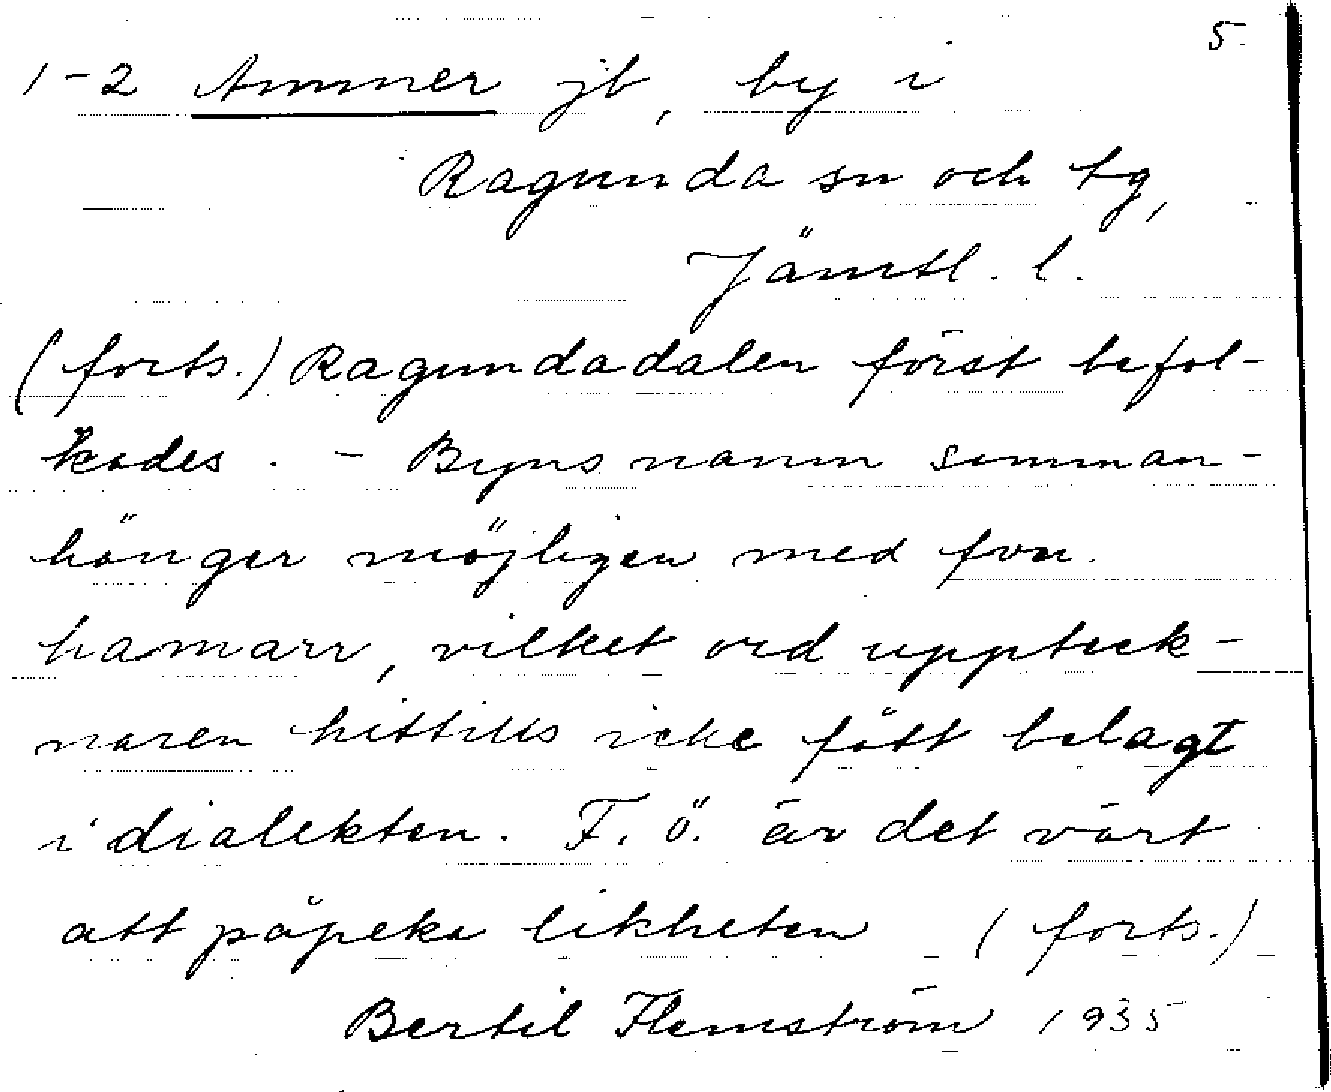 5.
1-2 Ammer jb, by i
Ragunda sn och tg,
Jämtl. l.
(forts.) Ragundadalen först befol-
kades. - Byns namn samman-
hänger möjligen med fvn.
hamarr, vilket ord uppteck-
naren hittills icke fått belagt
i dialekten. F. ö. är det värt
att påpeka likheten (forts.)
Bertil Flemström 1935